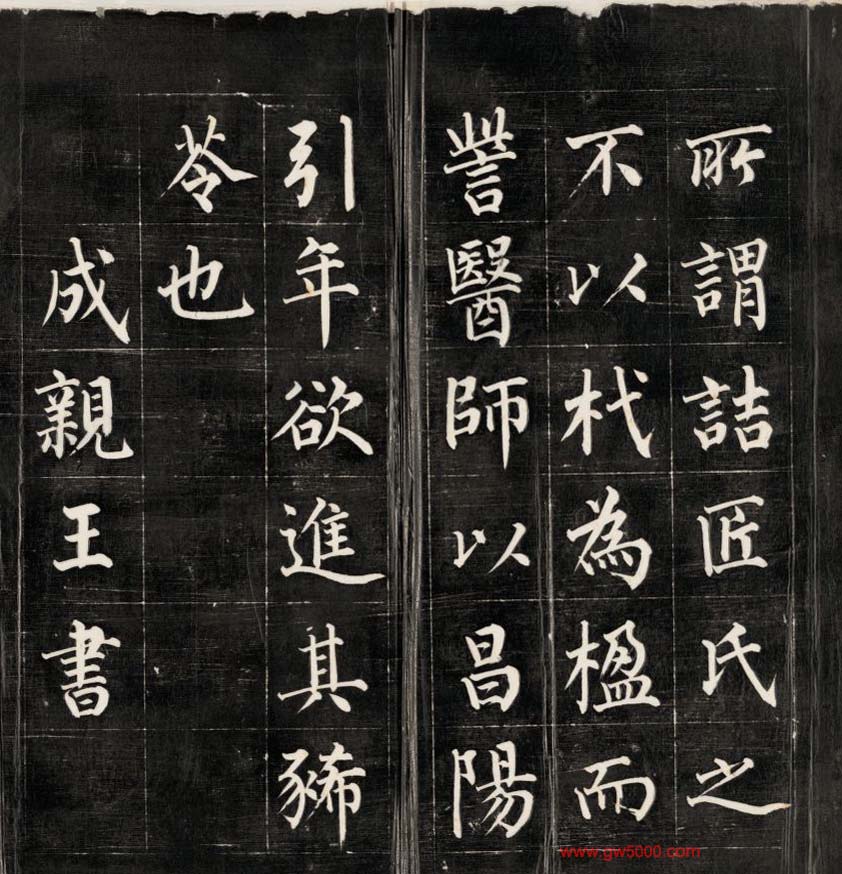 所謂詰匠氏之
不以杙為楹而
訾醫師以昌陽
引年欲進其豨
苓也
成親王書
www.gw5000.com